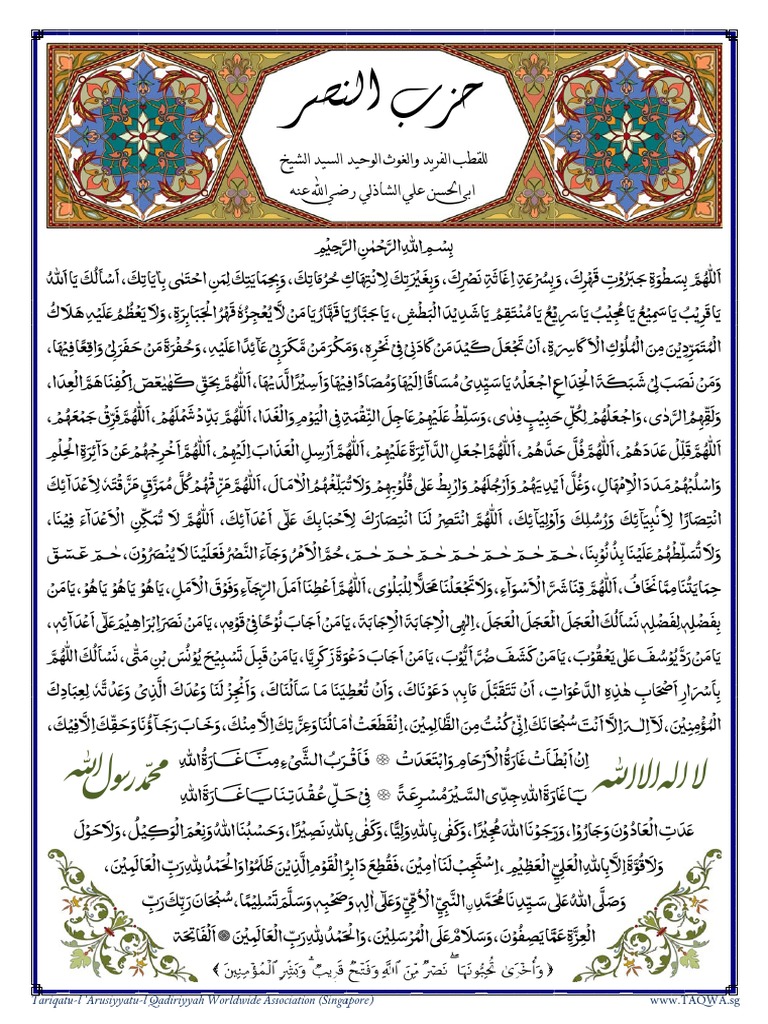 حزب النصر
للقطب الفريد والغوث الوحيد السيد الشيخ
ابي الحسن علي الشاذلي رضي الله عنه
بِسْمِ اللهِ الرَّحْمٰنِ الرَّحِيْمِ
اَللّٰهُمَّ بِسَطْوَةِ جَبَرُوْتِ قَهْرِكَ، وَبِسُرْعَةِ اِغَاثَةِ نَصْرِكَ، وَبِغَيْرَتِكَ لِانْتِهَاكِ حُرُمَاتِكَ، وَبِحِمَايَتِكَ لِمَنِ احْتَمٰى بِاٰيَاتِكَ، اَسْأَلُكَ يَا اَللهُ
يَا قَرِيْبُ يَا سَمِيْعُ يَا مُجِيْبُ يَا سَرِيْعُ يَا مُنْتَقِمُ يَا شَدِيْدَ الْبَطْشِ، يَا جَبَّارُ يَا قَهَّارُ يَا مَنْ لَا يُعْجِزُهٗ قَهْرُ الْجَبَابِرَةِ، وَلَا يَعْظُمُ عَلَيْهِ هَلَاكُ
الْمُتَمَرِّدِيْنَ مِنَ الْمُلُوْكِ الْاَكَاسِرَةِ، اَنْ تَجْعَلَ كَيْدَ مَنْ كَادَنِيْ فِيْ نَحْرِهٖ، وَمَكْرَ مَنْ مَكَرَ بِيْ عَائِدًا عَلَيْهِ، وَحُفْرَةَ مَنْ حَفَرَ لِيْ وَاقِعًا فِيْهَا،
وَمَنْ نَصَبَ لِيْ شَبَكَةَ الْخِدَاعِ اجْعَلْهُ يَا سَيِّدِيْ مُسَاقًا اِلَيْهَا وَمُصَادًا فِيْهَا وَاَسِيْرًا لَّدَيْهَا، اَللّٰهُمَّ بِحَقِّ كٓهٰيٰعٓصٓ اِكْفِنَا هَمَّ الْعِدَا،
وَلَقِّهِمُ الرَّدٰى، وَاجْعَلْهُمْ لِكُلِّ حَبِيْبٍ فِدٰى، وَسَلِّطْ عَلَيْهِمْ عَاجِلَ النِّقْمَةِ فِي الْيَوْمِ وَالْغَدَا، اَللّٰهُمَّ بَدِّدْ شَمْلَهُمْ، اَللّٰهُمَّ فَرِّقْ جَمْعَهُمْ،
اَللّٰهُمَّ قَلِّلْ عَدَدَهُمْ، اَللّٰهُمَّ فُلَّ حَدَّهُمْ، اَللّٰهُمَّ اجْعَلِ الدَّائِرَةَ عَلَيْهِمْ، اَللّٰهُمَّ اَرْسِلِ الْعَذَابَ اِلَيْهِمْ، اَللّٰهُمَّ اَخْرِجْهُمْ عَنْ دَائِرَةِ الْحِلْمِ
وَاسْلُبْهُمْ مَدَدَ الْاِمْهَالِ، وَغُلَّ اَيْدِيَهُمْ وَاَرْجُلَهُمْ وَارْبِطْ عَلٰى قُلُوْبِهِمْ وَلَا تُبَلِّغْهُمُ الْاٰمَالَ، اَللّٰهُمَّ مَزِّقْهُمْ كُلَّ مُمَزَّقٍ مَزَّقْتَهٗ لِاَعْدَائِكَ
انْتِصَارًا لِاَنْبِيَائِكَ وَرُسُلِكَ وَاَوْلِيَائِكَ، اَللّٰهُمَّ انْتَصِرْ لَنَا انْتِصَارَكَ لِاَحْبَابِكَ عَلٰى اَعْدَائِكَ، اَللّٰهُمَّ لَا تُمَكِّنِ الْاَعْدَاءَ فِيْنَا،
وَلَا تُسَلِّطْهُمْ عَلَيْنَا بِذُنُوْبِنَا، حٰمٓ، حٰمٓ، حٰمٓ، حٰمٓ، حٰمٓ، حٰمٓ، حٰمٓ، حُمَّ الْاَمْرُ وَجَاءَ النَّصْرُ فَعَلَيْنَا لَا يُنْصَرُوْنَ، حٰمٓ عٓسٓقٓ
حِمَايَتُنَا مِمَّا نَخَافُ، اَللّٰهُمَّ قِنَا شَرَّ الْاَسْوَاءِ، وَلَا تَجْعَلْنَا مَحَلًّا لِلْبَلْوٰى، اَللّٰهُمَّ اَعْطِنَا اَمَلَ الرَّجَاءِ وَفَوْقَ الْاَمَلِ، يَا هُوْ يَا هُوْ يَا هُوْ، يَا مَنْ
بِفَضْلِهٖ لِفَضْلِهٖ نَسْأَلُكَ الْعَجَلَ الْعَجَلَ الْعَجَلَ، اِلٰهِي الْاِجَابَةَ الْاِجَابَةَ، يَا مَنْ اَجَابَ نُوْحًا فِيْ قَوْمِهٖ، يَا مَنْ نَصَرَ اِبْرَاهِيْمَ عَلٰى اَعْدَائِهٖ،
يَا مَنْ رَدَّ يُوْسُفَ عَلٰى يَعْقُوْبَ، يَا مَنْ كَشَفَ ضُرَّ اَيُّوْبَ، يَا مَنْ اَجَابَ دَعْوَةَ زَكَرِيَّا، يَا مَنْ قَبِلَ تَسْبِيْحَ يُوْنُسَ بْنِ مَتّٰى، نَسْأَلُكَ اللّٰهُمَّ
بِاَسْرَارِ اَصْحَابِ هٰذِهِ الدَّعْوَاتِ، اَنْ تَتَقَبَّلَ مَا بِهٖ دَعَوْنَاكَ، وَاَنْ تُعْطِيَنَا مَا سَاَلْنَاكَ، وَاَنْجِزْ لَنَا وَعْدَكَ الَّذِيْ وَعَدْتَّهٗ لِعِبَادِكَ
الْمُؤْمِنِيْنَ، لَا اِلٰهَ اِلَّا اَنْتَ سُبْحَانَكَ اِنِّيْ كُنْتُ مِنَ الظَّالِمِيْنَ، اِنْقَطَعَتْ اٰمَالُنَا وَعِزَّتِكَ اِلَّا مِنْكَ، وَخَابَ رَجَاؤُنَا وَحَقِّكَ اِلَّا فِيْكَ،
اِنْ اَبْطَأَتْ غَارَةُ الْاَرْحَامِ وَابْتَعَدَتْ ۞ فَاَقْرَبُ الشَّيْءِ مِنَّا غَارَةُ اللهِ
يَا غَارَةَ اللهِ جِدِّي السَّيْرَ مُسْرِعَةً ۞ فِيْ حَلِّ عُقْدَتِنَا يَا غَارَةَ اللهِ
لا اله الا الله
محمد رسول الله
عَدَتِ الْعَادُوْنَ وَجَارُوْا، وَرَجَوْنَا اللهَ مُجِيْرًا، وَكَفٰى بِاللهِ وَلِيًّا، وَكَفٰى بِاللهِ نَصِيْرًا، وَحَسْبُنَا اللهُ وَنِعْمَ الْوَكِيْلُ، وَلَا حَوْلَ
وَلَا قُوَّةَ اِلَّا بِاللهِ الْعَلِيِّ الْعَظِيْمِ، اِسْتَجِبْ لَنَا اٰمِيْنَ، فَقُطِعَ دَابِرُ الْقَوْمِ الَّذِيْنَ ظَلَمُوْا وَالْحَمْدُ لِلّٰهِ رَبِّ الْعَالَمِيْنَ،
وَصَلَّى اللهُ عَلٰى سَيِّدِنَا مُحَمَّدِنِ النَّبِيِّ الْاُمِّيِّ وَعَلٰى اٰلِهٖ وَصَحْبِهٖ وَسَلَّمَ تَسْلِيْمًا، سُبْحَانَ رَبِّكَ رَبِّ
الْعِزَّةِ عَمَّا يَصِفُوْنَ، وَسَلَامٌ عَلَى الْمُرْسَلِيْنَ، وَالْحَمْدُ لِلّٰهِ رَبِّ الْعَالَمِيْنَ ۞ اَلْفَاتِحَة
﴿ وَأُخْرَىٰ تُحِبُّونَهَا ۖ نَصْرٌ مِّنَ اللَّهِ وَفَتْحٌ قَرِيبٌ ۗ وَبَشِّرِ الْمُؤْمِنِينَ ﴾
Tariqatu-l 'Arusiyyatu-l Qadiriyyah Worldwide Association (Singapore)
www.TAQWA.sg